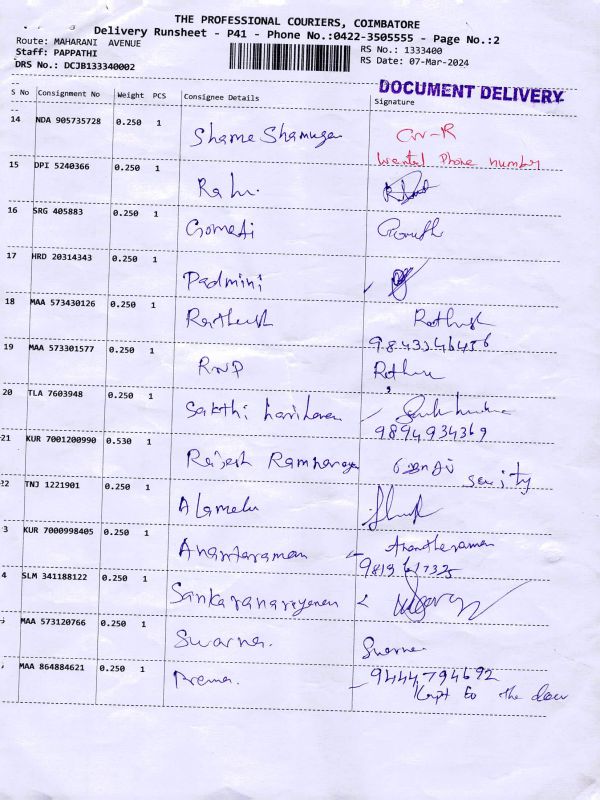 THE PROFESSIONAL COURIERS, COIMBATORE
Delivery Runsheet - P41 - Phone No.:0422-3505555 - Page No.:2
Route: MAHARANI AVENUE
RS No.: 1333400
Staff: PAPPATHI
RS Date: 07-Mar-2024
DRS No.: DCJB133340002
DOCUMENT DELIVERY
S No Consignment No Weight PCS Consignee Details Signature
14 NDA 905735728 0.250 1
Shame Shamuga
Phone number
15 DPI 5240366 0.250 1
16 SRG 405883 0.250 1
Gomati
17 HRD 20314343 0.250 1
Padmini
18 MAA 573430126 0.250 1
Rathush Rathush
9843346456
19 MAA 573301577 0.250 1
RNP
20 TLA 7603948 0.250 1
Sakthi hariharan
9894934369
21 KUR 7001200990 0.530 1
Rajesh Ramnaraya
22 TNJ 1221901 0.250 1
Alamelu
3 KUR 7000998405 0.250 1
Anantaraman Anantheraman
4 SLM 341188122 0.250 1
Sankaranarayanan
MAA 573120766 0.250 1
Swarna. Swarna
MAA 864884621 0.250 1
Prema. 9444794692
Kept to the door